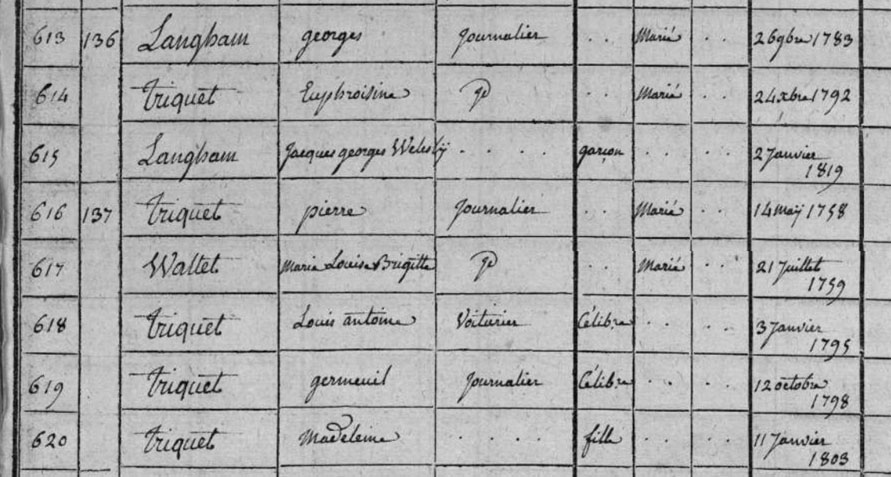 613 136 Langham georges Journalier . . Marié . . 26 9bre 1783
614 Triquet Euphroisine . . Marié . . 24 xbre 1792
615 Langham Jacques georges Welesly . . . . garçon . . . . 2 Janvier 1819
616 137 Triquet pierre Journalier . . Marié . . 14 maÿ 1758
617 Waltet Marie Louise Brigitte . . Marié . . 21 Juillet 1759
618 Triquet Louis antoine Voiturier Célibre . . . . 3 Janvier 1795
619 Triquet germeuil Journalier Célibre . . . . 12 octobre 1798
620 Triquet Madeleine . . . . fille . . . . 11 Janvier 1803